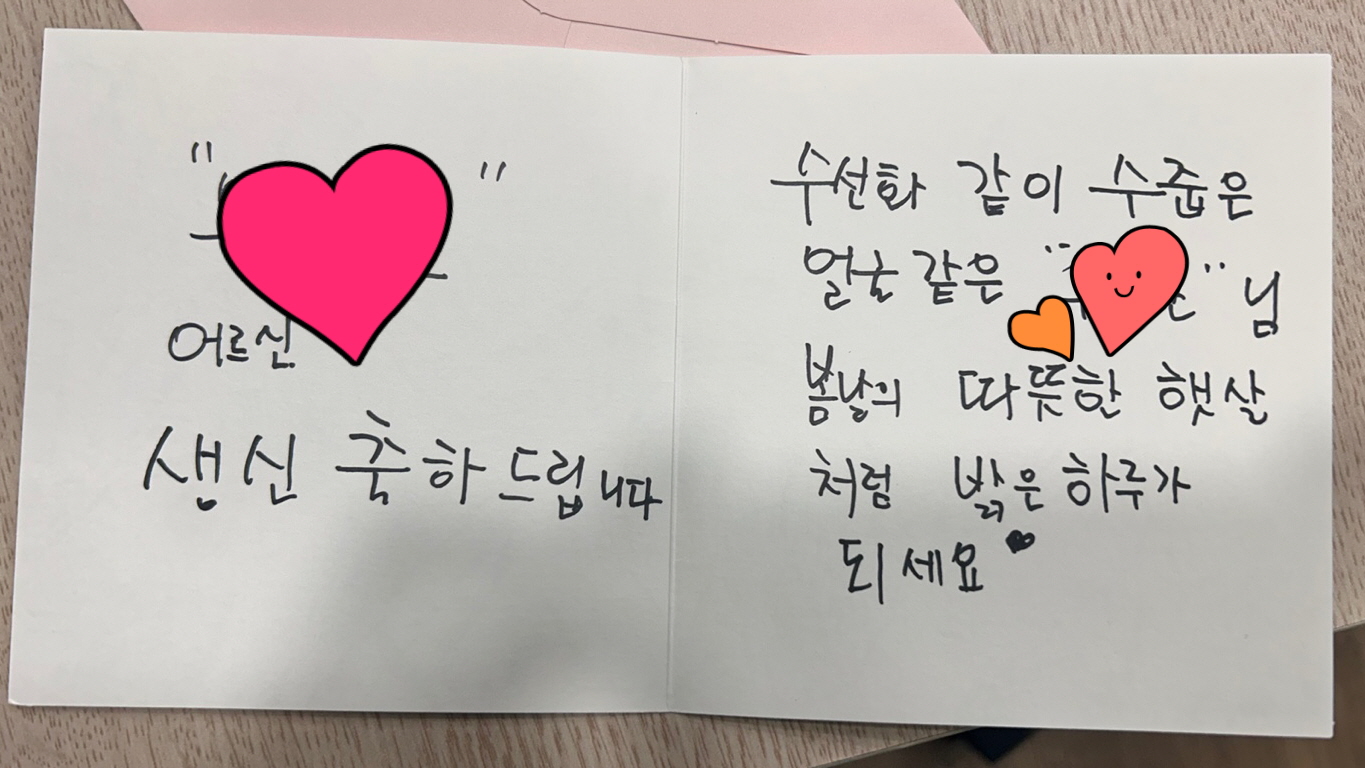 " "
어르신
생신 축하드립니다
수선화 같이 수줍은
얼굴 같은 " " 님
봄날의 따뜻한 햇살
처럼 밝은 하루가
되세요